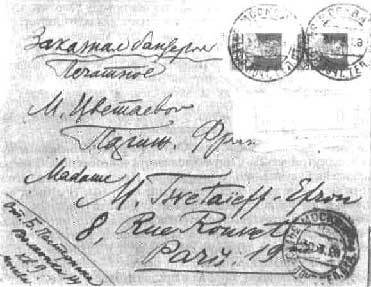 МОСКВА
Заказная бандероль
Печатное
М. Цветаевой
Париж. Фран
Madame
M. Tsvetaieff-Efron
8, Rue Rouvet
Paris 19
от Б. Пастернака
Волхонка 14
кв. 9
МОСКВА